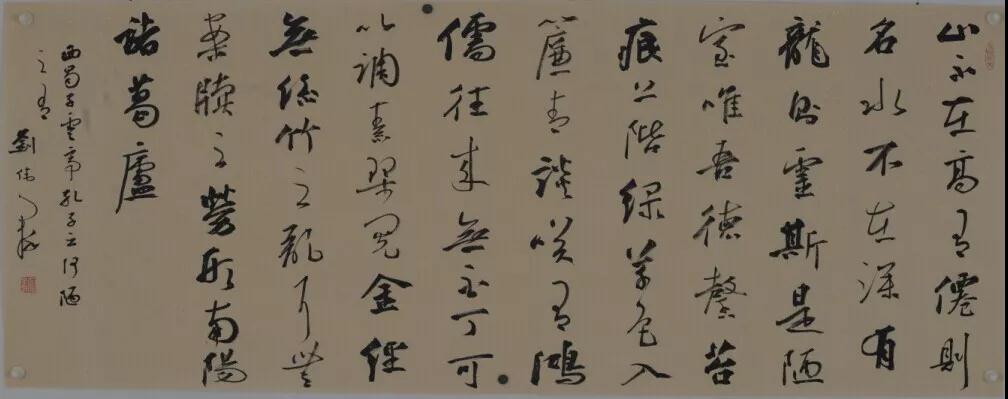 山不在高有僊則
名水不在深有
龍則靈斯是陋
室唯吾德馨苔
痕上階綠草色入
簾青談笑有鴻
儒往來無白丁可
以調素琴閱金經
無絲竹之亂耳無
案牘之勞形南陽
諸葛廬
西蜀子雲亭孔子云何陋
之有 劉偉